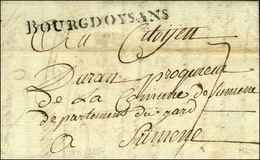 BOURGDOYSANS
Au Citoyen
Duran procureur
de La Comune de Sumene
departement du gard
a Sumene